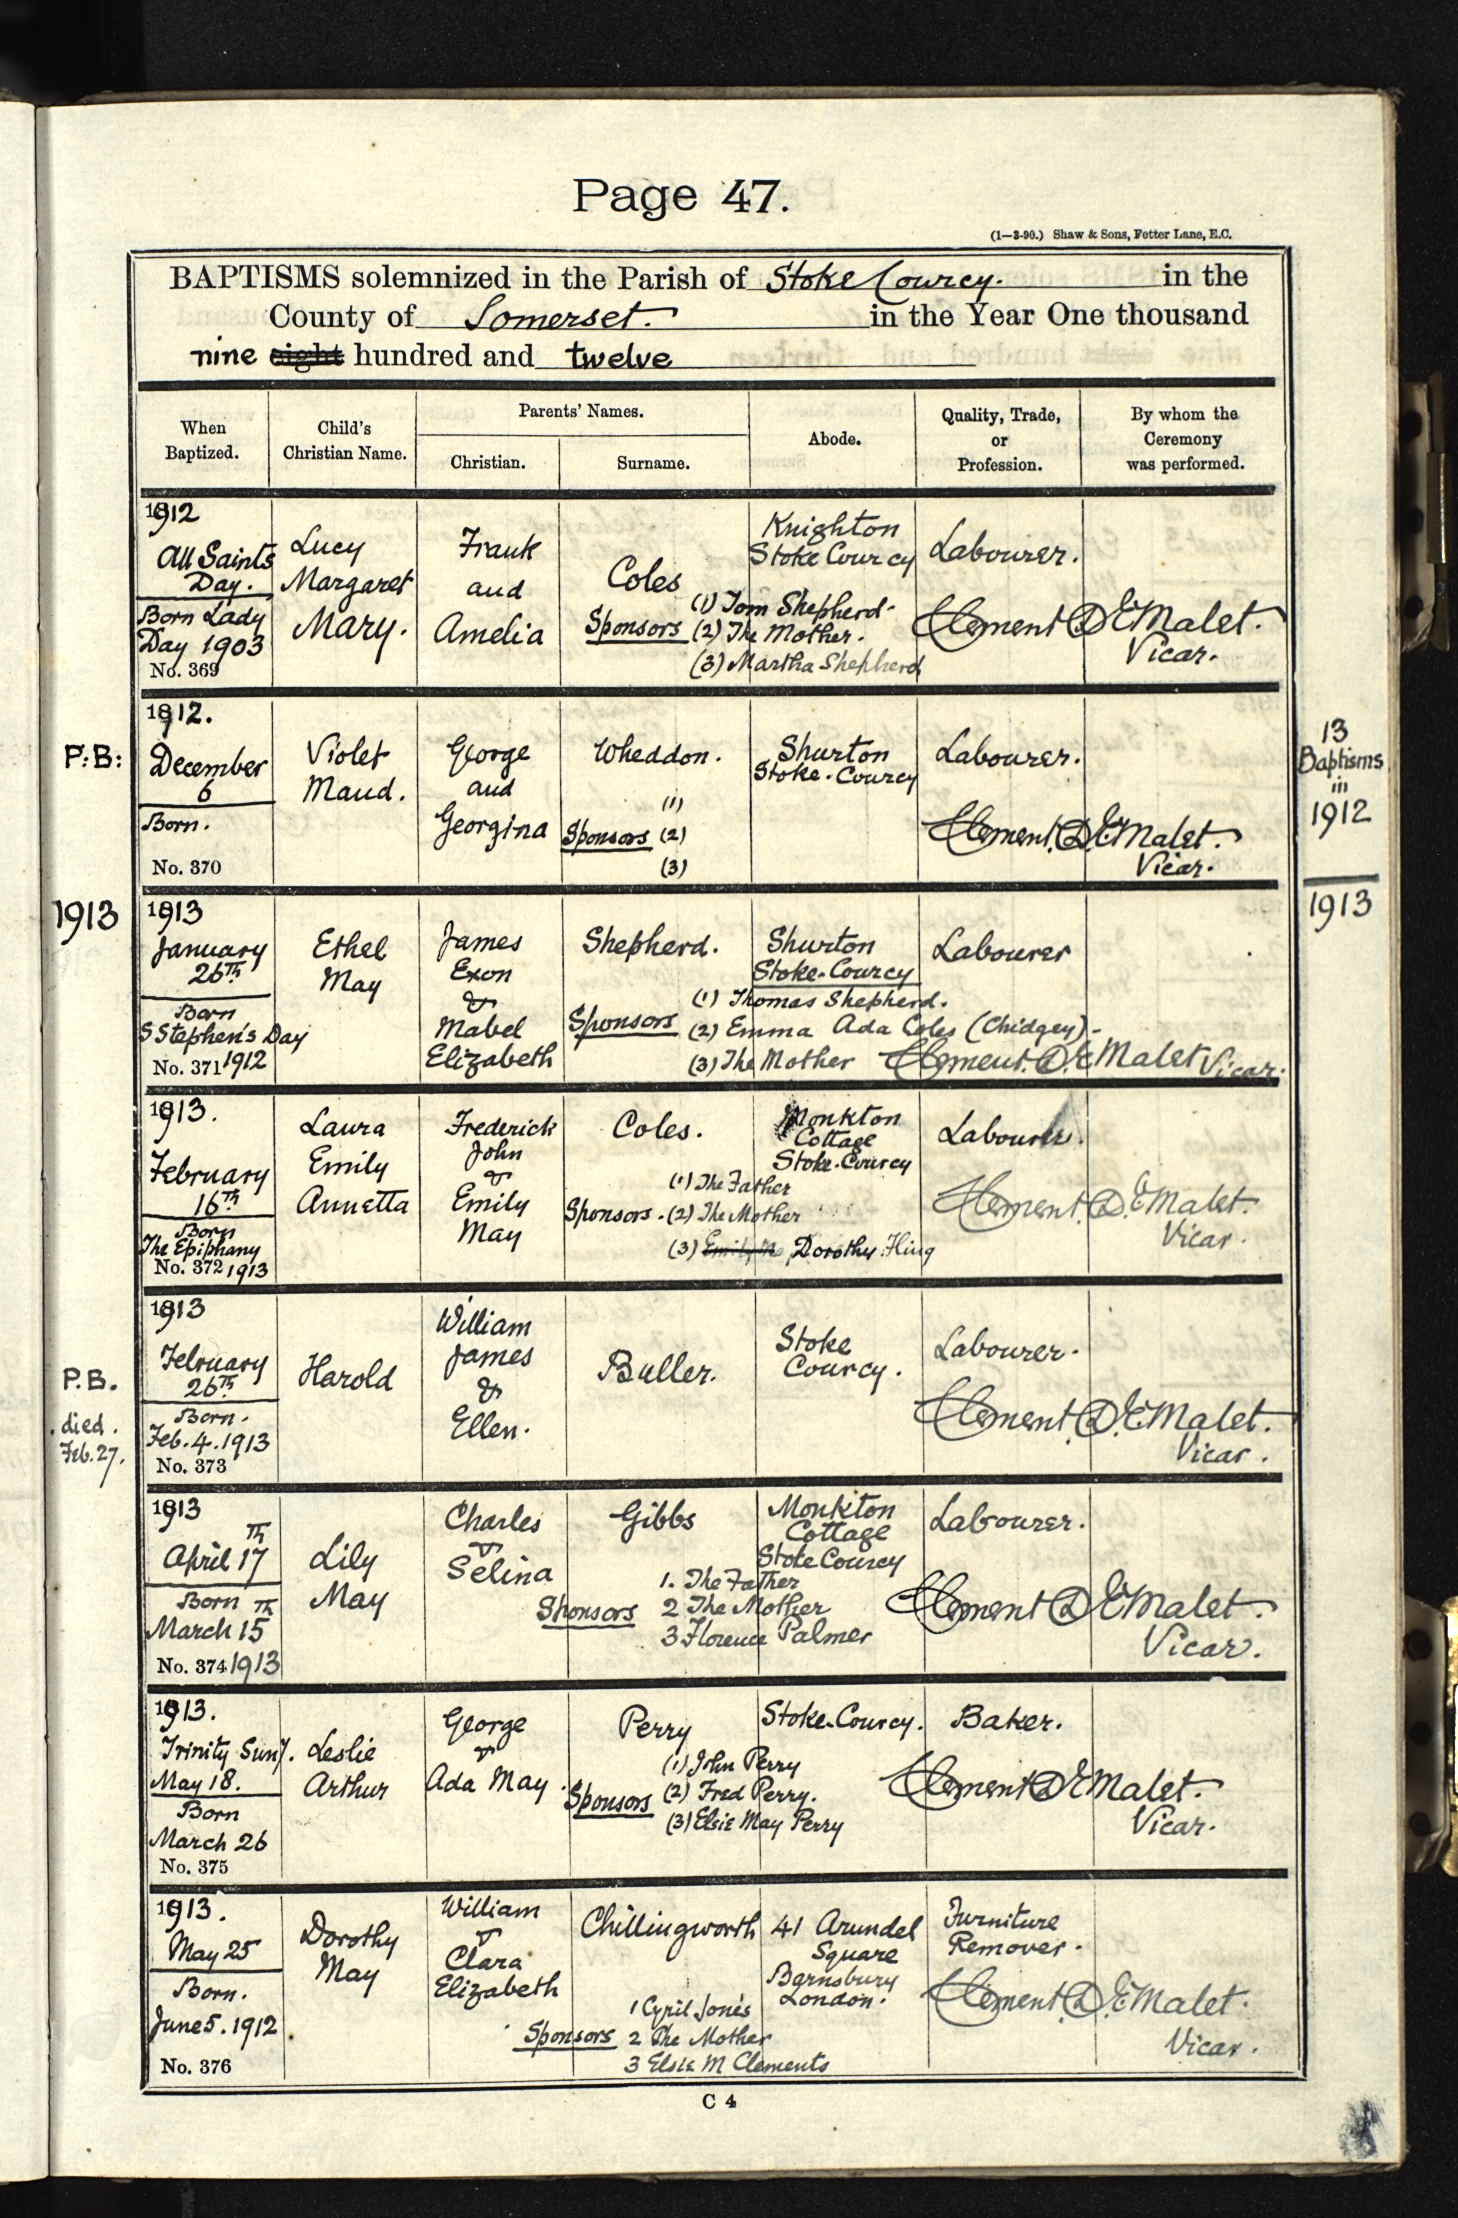 Page 47.
(1—3-90.) Shaw & Sons, Fetter Lane, E.C.
BAPTISMS solemnized in the Parish of Stoke Courcy. in the
County of Somerset. in the Year One thousand
nine eight hundred and twelve
When Baptized.
Child's Christian Name.
Parents' Names.
Christian.
Surname.
Abode.
Quality, Trade, or Profession.
By whom the Ceremony was performed.
1912
All Saints
Day.
Born Lady
Day 1903
No. 369
Lucy
Margaret
Mary.
Frank
and
Amelia
Coles
Knighton
Stoke Courcy
Labourer.
Sponsors
(1) Tom Shepherd
(2) The Mother.
(3) Martha Shepherd
Clement D E Malet.
Vicar.
P:B:
1912.
December
6
Born.
No. 370
Violet
Maud.
George
and
Georgina
Wheddon.
Shurton
Stoke-Courcy
Labourer.
Sponsors
(1)
(2)
(3)
Clement. D. E Malet.
Vicar.
13
Baptisms
in
1912
1913
1913
1913
January
26th
Born
S Stephen's Day
No. 371 1912
Ethel
May
James
Exon
&
Mabel
Elizabeth
Shepherd.
Shurton
Stoke-Courcy
Labourer
Sponsors
(1) Thomas Shepherd.
(2) Emma Ada Coles (Chidgey)-
(3) The Mother
Clement. D. E Malet Vicar.
1913.
February
16th
Born
The Epiphany
No. 372 1913
Laura
Emily
Annetta
Frederick
John
&
Emily
May
Coles.
Monkton
Cottage
Stoke-Courcy
Labourer.
Sponsors.
(1) The Father
(2) The Mother
(3) Dorothy Hling
Clement. D. E Malet.
Vicar.
P.B.
died.
Feb. 27.
1913
February
26th
Born.
Feb. 4. 1913
No. 373
Harold
William
James
&
Ellen.
Buller.
Stoke
Courcy.
Labourer.
Clement. D. E Malet.
Vicar.
1913
April 17th
Born
March 15th
No. 374 1913
Lily
May
Charles
&
Selina
Gibbs
Monkton
Cottage
Stoke Courcy
Labourer.
Sponsors
1. The Father
2 The Mother
3 Florence Palmer
Clement D E Malet.
Vicar.
1913.
Trinity Sun/.
May 18.
Born
March 26
No. 375
Leslie
Arthur
George
&
Ada May.
Perry
Stoke-Courcy.
Baker.
Sponsors
(1) John Perry
(2) Fred Perry.
(3) Elsie May Perry
Clement D E Malet.
Vicar.
1913.
May 25
Born.
June 5. 1912.
No. 376
Dorothy
May
William
&
Clara
Elizabeth
Chillingworth
41 Arundel
Square
Barnsbury
London.
Furniture
Remover.
Sponsors
1 Cyril Jones
2 The Mother
3 Elsie M Clements
Clement. D. E Malet.
Vicar.
C 4